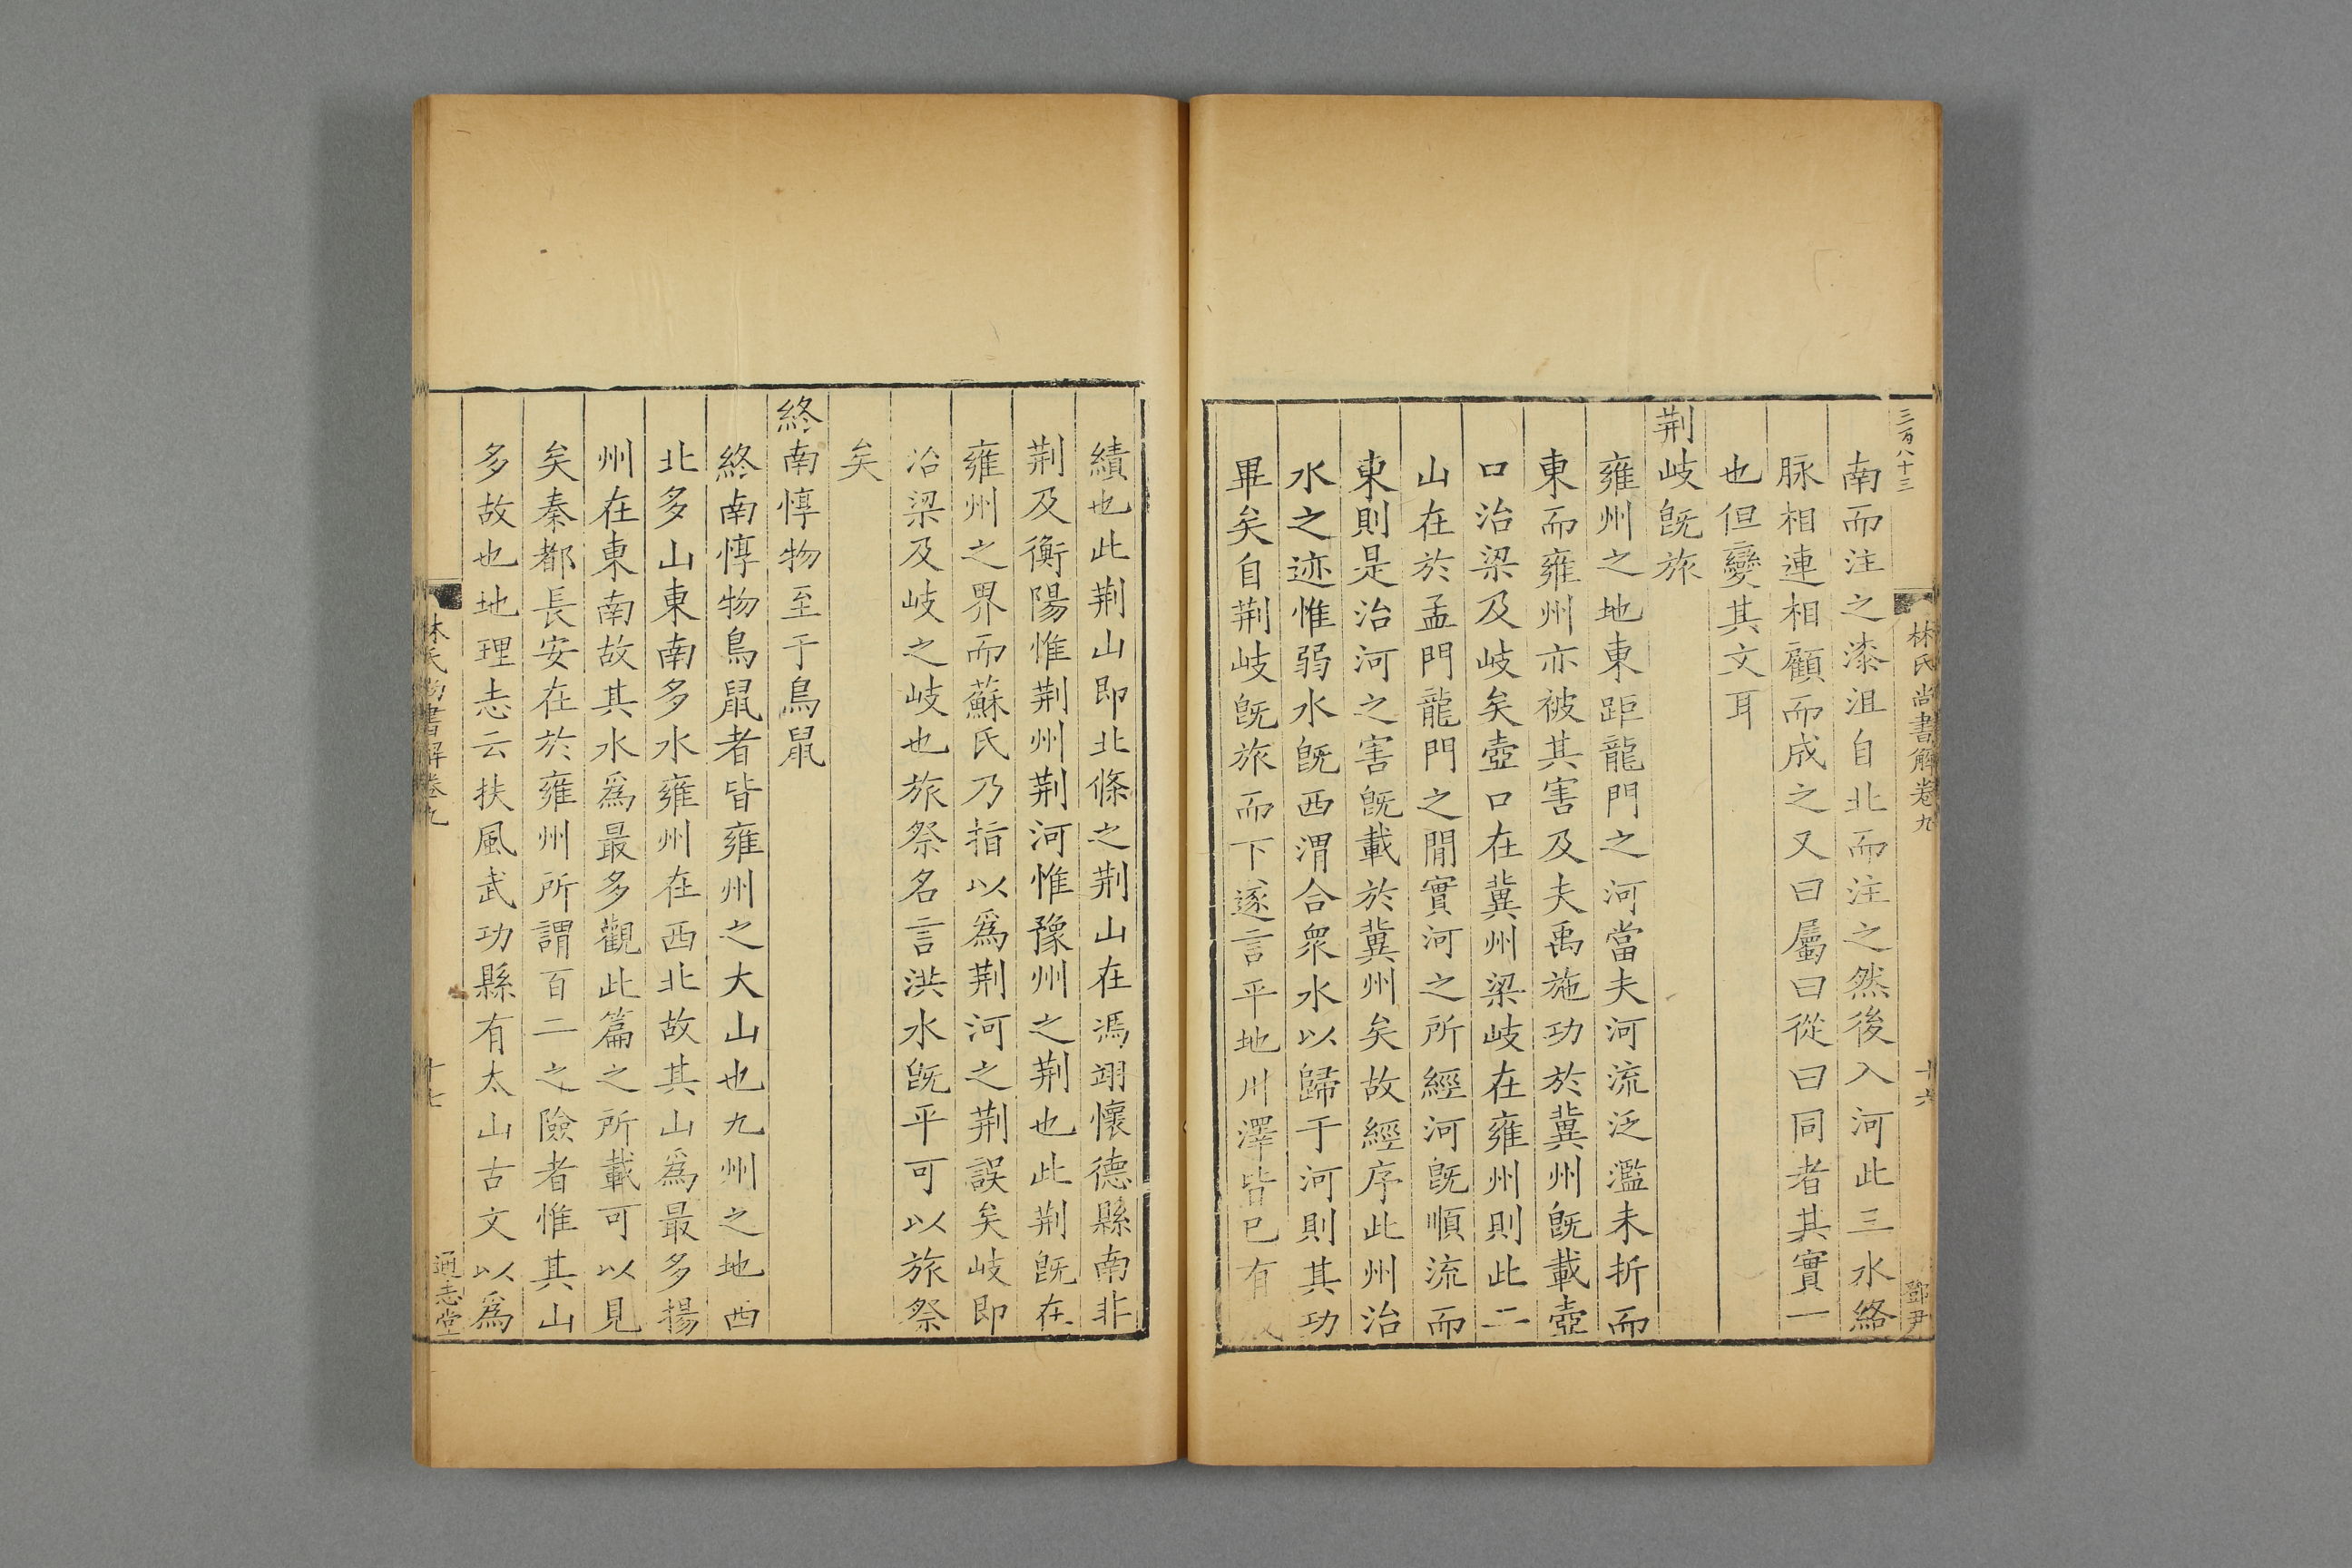 三百八十三
林氏尚書解卷九
十六
鄧尹
南而注之漆沮自北而注之然後入河此三水絡
脉相連相顧而成之又曰屬曰從曰同者其實一
也但變其文耳
荆岐旣旅
雍州之地東距龍門之河當夫河流泛濫未折而
東而雍州亦被其害及夫禹施功於冀州旣載壺
口治梁及岐矣壺口在冀州梁岐在雍州則此二
山在於孟門龍門之間實河之所經河旣順流而
東則是治河之害旣載於冀州矣故經序此州治
水之迹惟弱水旣西渭合衆水以歸于河則其功
畢矣自荆岐旣旅而下遂言平地川澤皆已有成
績也此荆山即北條之荆山在馮翊懷德縣南非
荆及衡陽惟荆州荆河惟豫州之荆也此荆旣在
雍州之界而蘇氏乃指以爲荆河之荆誤矣岐即
冶梁及岐之岐也旅祭名言洪水旣平可以旅祭
矣
終南惇物至于鳥鼠
終南惇物鳥鼠者皆雍州之大山也九州之地西
北多山東南多水雍州在西北故其山爲最多揚
州在東南故其水爲最多觀此篇之所載可以見
矣秦都長安在於雍州所謂百二之險者惟其山
多故也地理志云扶風武功縣有太山古文以爲
林氏尚書解卷九
十七
通志堂